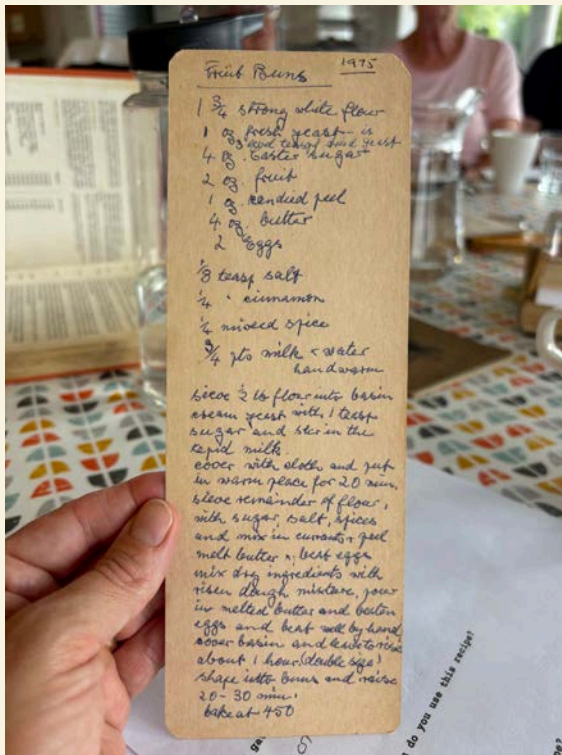 Fruit Buns
1975
1 3/4 strong white flour
1 oz fresh yeast is
3 teasp dried yeast
4 oz. caster sugar
2 oz. fruit
1 oz. candied peel
4 oz. butter
2 eggs
1/8 teasp salt
1/4 " cinnamon
1/4 mixed spice
3/4 pts milk & water
handwarm
sieve 1/2 lb flour into basin
cream yeast with 1 teasp
sugar and stir in the
tepid milk.
cover with cloth and put
in warm place for 20 min,
sieve remainder of flour,
with sugar, salt, spices
and mix in currants & peel
melt butter & beat eggs
mix dry ingredients with
risen dough mixture, pour
in melted butter and beaten
eggs and beat well by hand,
cover basin and leave to rise
about 1 hour (double size)
shape into buns and raise
20-30 min.
bake at 450
do you use this recipe?